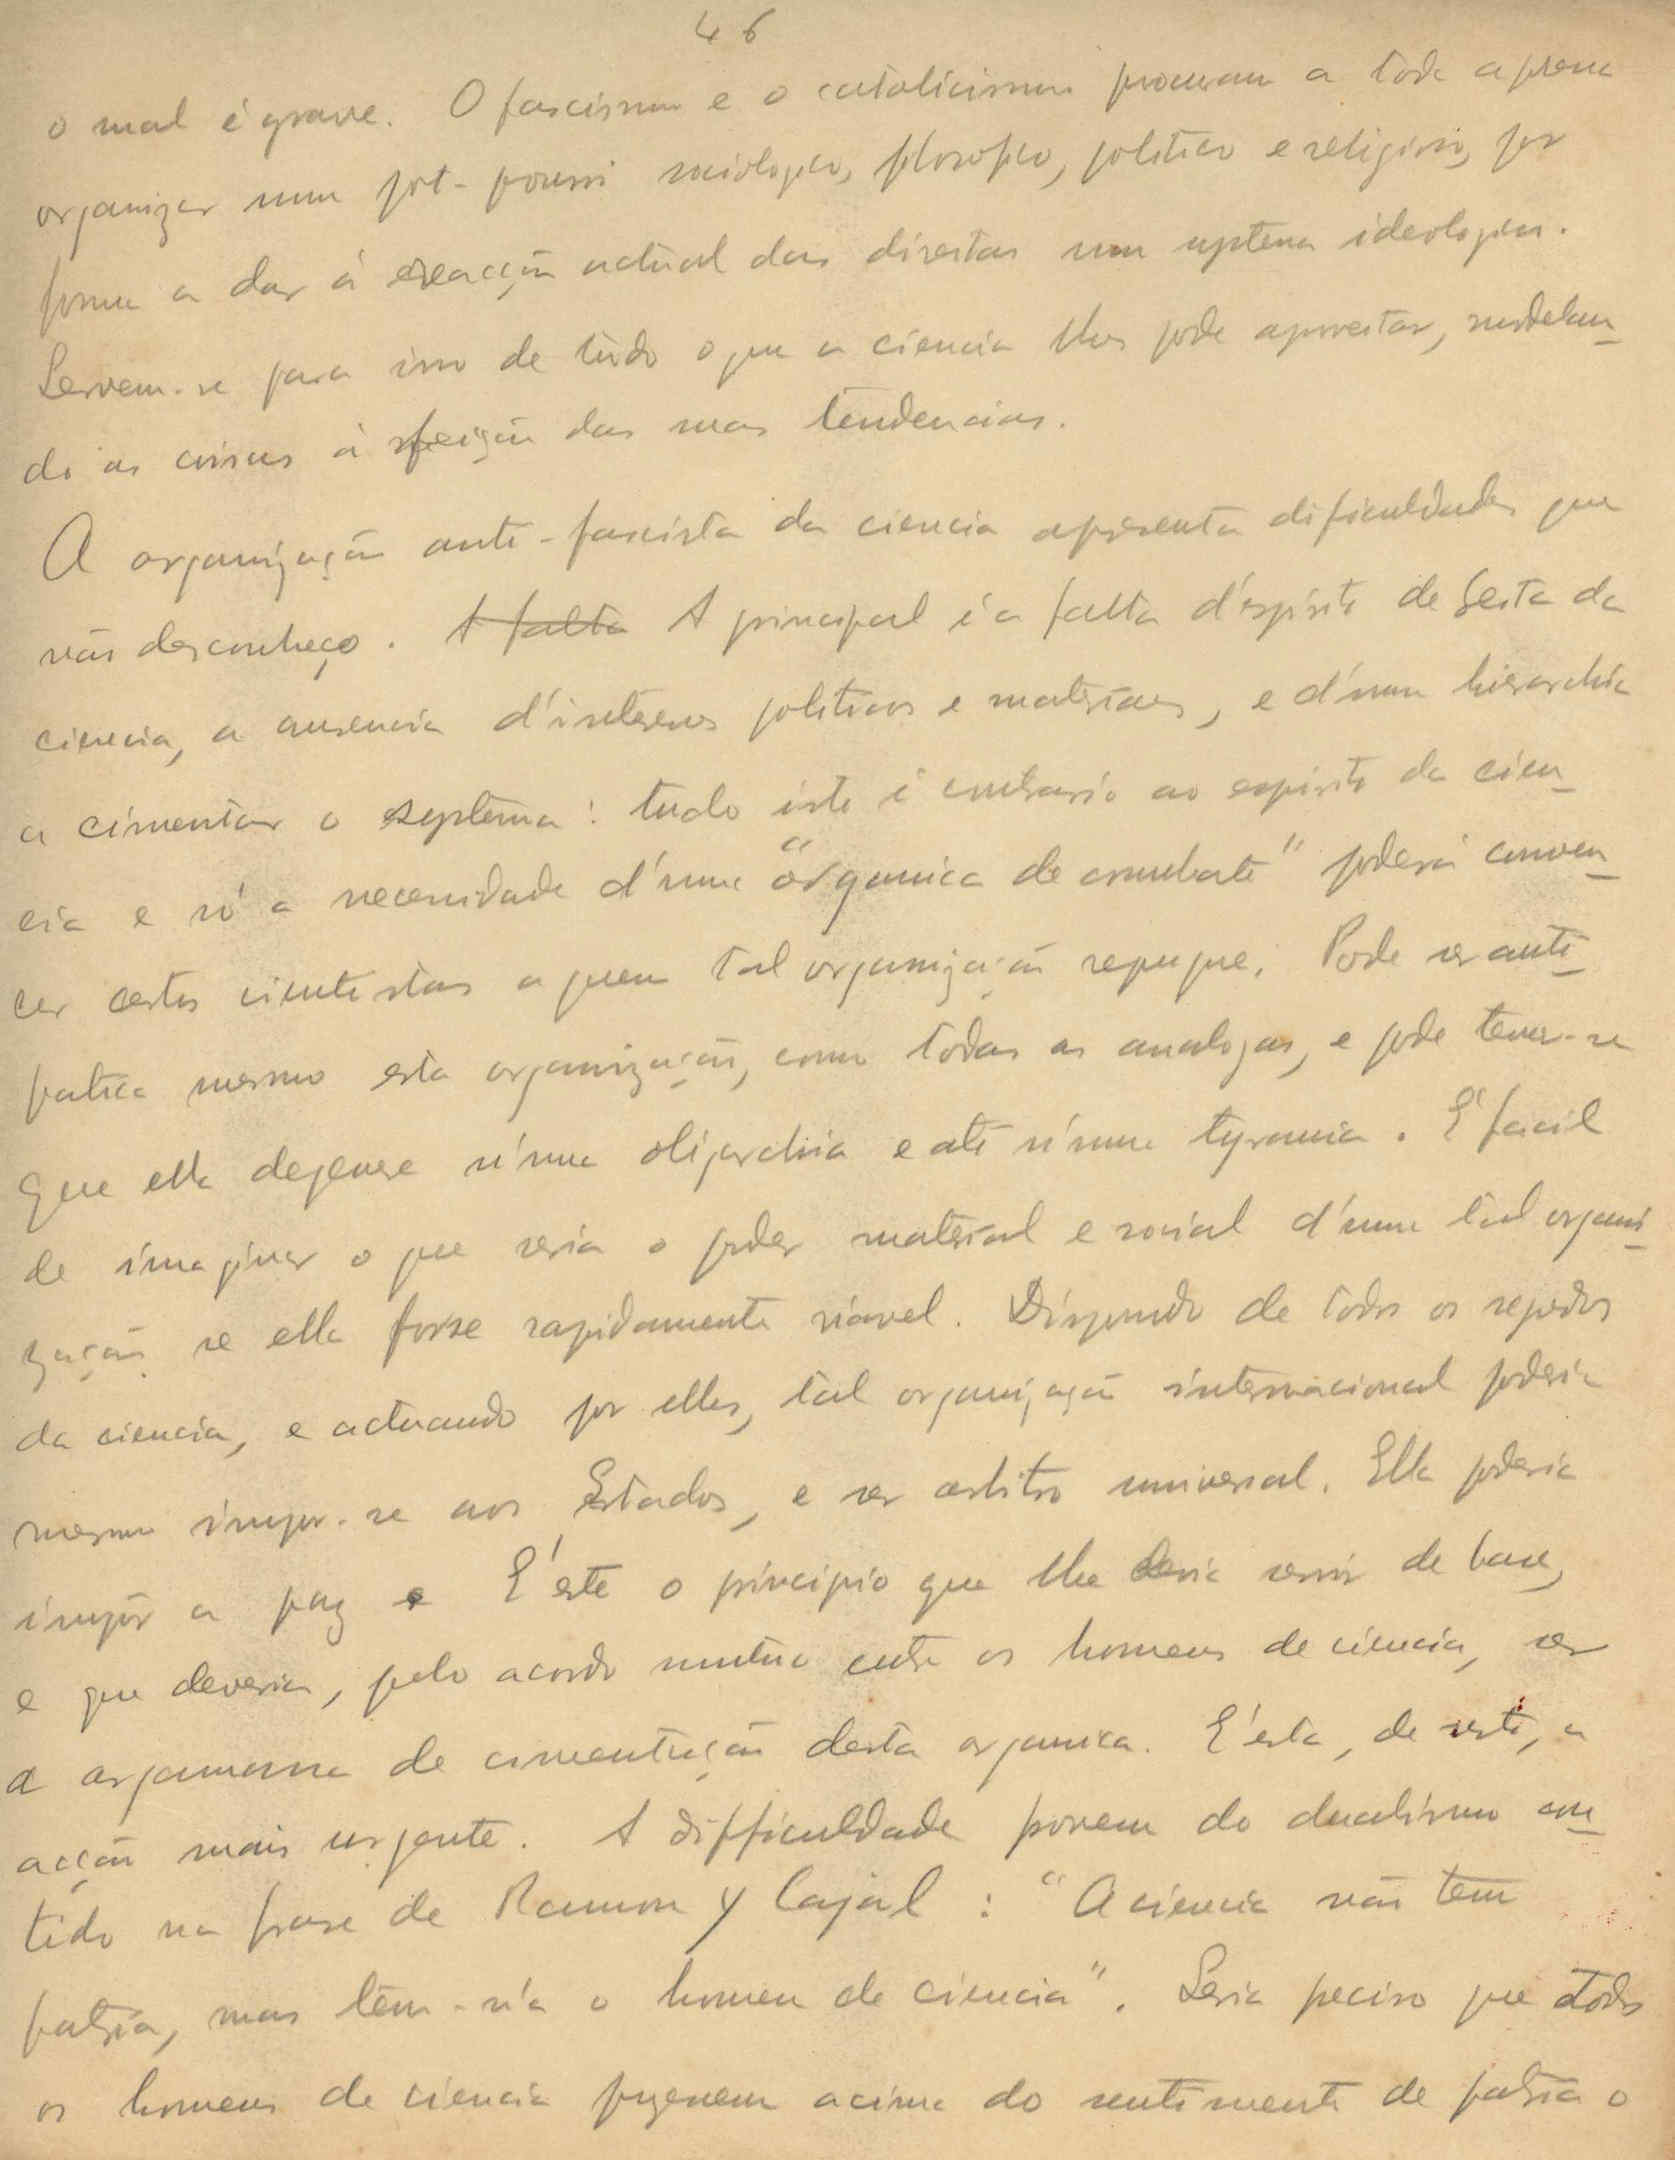 46
o mal é grave. O fascismo e o catolicismo procuram a toda a pressa
organizar um pot-pourri sociologico, filosofico, politico e religioso, por
forma a dar á reacção actual das direitas um systema ideologico.
Servem-se para isso de tudo o que a ciencia lhes pode aproveitar, modelan-
do as coisas á feição das suas tendencias.
A organização anti-fascista da ciencia apresenta dificuldades que
não desconheço. A falta A principal é a falta d'espirito de Seita da
ciencia, a ausencia d'interesses politicos e materiaes, e d'uma hierarchia
a cimentar o systema: tudo isto é contrario ao espirito da cien-
cia e só a necessidade d'uma "organica de combate" poderá conven-
cer certos cientistas a quem tal organização repugne. Pode ser anti-
patica mesmo esta organização, como todas as analogas, e pode temer-se
que ella degenere n'uma oligarchia e até n'uma tyrania. E' facil
de imaginar o que seria o poder material e social d'uma tal organi-
zação se ella fosse rapidamente viavel. Dispondo de todos os segredos
da ciencia, e actuando por elles, tal organização internacional poderia
mesmo impor-se aos Estados, e ser arbitro universal. Ella poderia
impôr a paz e E' este o principio que lhe devia servir de base,
e que deveria, pelo acordo mutuo entre os homens de ciencia, ser
a argamassa de cimentação desta organica. E' esta, de resto, a
acção mais urgente. A difficuldade provem do dualismo con-
tido na frase de Ramon y Cajal: "A ciencia não tem
patria, mas tem-n'a o homem de ciencia". Seria preciso que todos
os homens de ciencia puzessem acima do sentimento de patria o